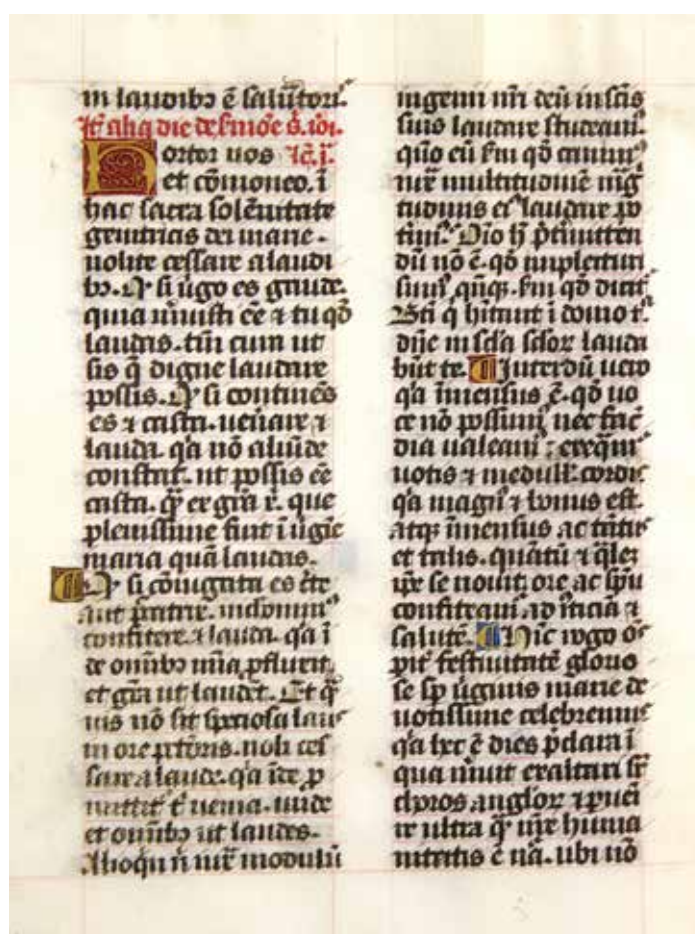 in laudibꝫ ē salutori.
It̄ aliq̄ die de s̄mōe s̄. ioh̄.
Hortor uos lc̄. j.
et cōmoneo. ī
hac sacra solēnitate
genitricis dei marie.
nolite cessare a laudi
bꝫ. Qꝛ si ūgo es gaude.
quia mruisti eē ⁊ tu qd̄
laudas. tm̄ cura ut
sis q̄ digne laudare
possis. Qꝛ si continēs
es ⁊ casta. uenare ⁊
lauda. qa nō aliūde
constat. ut possis eē
casta. q̄ꝫ ex grā x̄. que
plenissime fuit ī ūgīe
maria quā laudas.
Qꝛ si cōiugata es c̄te
aut p̄tatrix. nichominꝰ
confitere ⁊ lauda. qa ī
de omībꝫ mīa ꝓfluxit
et grā ut laudēt. Et q̄ꝫ
uis nō sit speciosa laus
in ore pctōris. noli ces
sare a laude. qa īde ꝓ
mittit᷑ t̄ uenia. unde
et omībꝫ ut laudes.
Alioqn̄ n̄ iux̄ modulū
ingenii nr̄i deū in scīs
suis laudare studeamꝰ.
quō eū s̄m qd̄ canimꝰ
iux̄ multitudinē maḡ
tudinis eiꝰ laudare po
timꝰ. Nō h̄ p̄tmitten
dū nō ē. qd̄ iuplecturi
sumꝰ qn̄qꝫ. s̄m qd̄ dicit᷑
Bt̄i q̄ hitant ī domo t.
dn̄e in scl̄a scloꝝ lauda
būt te. Interdū uero
qa īmensus ē. qd̄ uo
ce nō possumꝰ nec fac̄
dia ualeamꝰ; exeqm̄
uotis ⁊ medull. cordis
qa magnꝰ ⁊ bonus est.
atqꝫ īmensus ac tātꝰ
et talis. quātū ⁊ q̄lez
ip̄e se nouit. ore ac sp̄u
confiteamꝰ ad iticiā ⁊
salutē. Hic rogo os̄
pit̄ festiuitatē glorio
se sp̄ ūginis marie de
uotissime celebremus
qa hec ē dies p̄clara ī
qua mruit exaltari sr̄
choros angloꝝ ⁊ pueī
re ultra q̄ꝫ nr̄e huma
nitatis ē nā. ubi nō